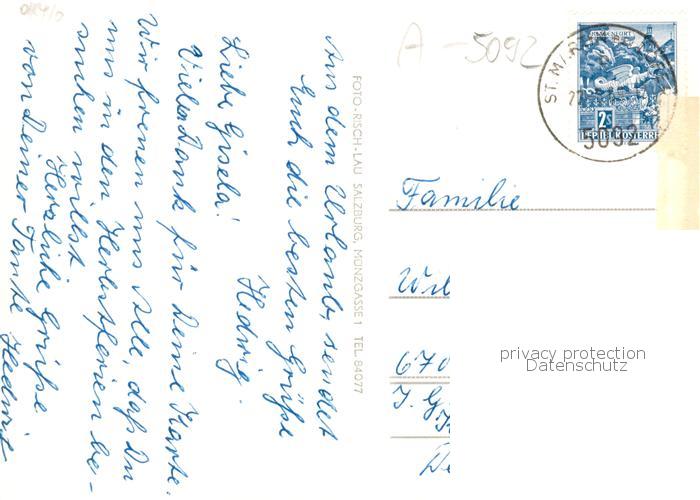 Aus dem Urlaub, sendet
Euch die besten Grüße
Hedwig.
Liebe Gisela!
Vielen Dank für Deine Karte.
Wir freuen uns Alle, daß Du
uns in den Herbstferien be-
suchen willst
Herzliche Grüße
von Deiner Tante Hedwig
FOTO-RISCH-LAU SALZBURG, MÜNZGASSE 1 TEL. 84077
A - 5092
KLAGENFURT
2S
REPUBLIK ÖSTERREICH
ST. MA
5092
Familie
Wil
670
De
privacy protection
Datenschutz